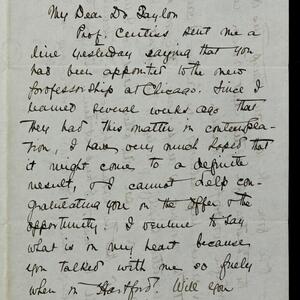 My Dear Dr Taylor
Prof. Curtiss sent me a
line yesterday saying that you
had been appointed to the new
professorship at Chicago. Since I
learned several weeks ago that
they had this matter in contempla-
tion, I have very much hoped that
it might come to a definite
result, & I cannot help con-
gratulating you on the offer & the
opportunity. I venture to say
what is in my heart because
you talked with me so freely
when in Hartford. Will you